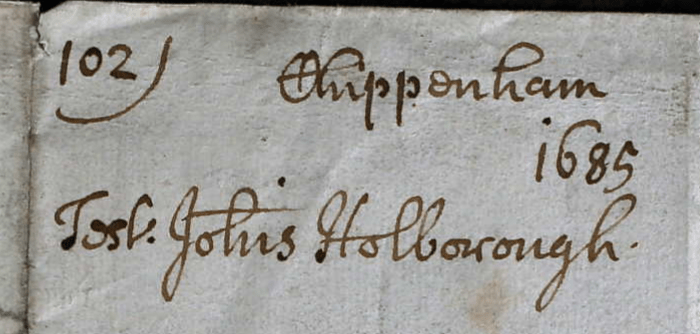 102)
Chippenham
1685
Test. Johis Holborough.